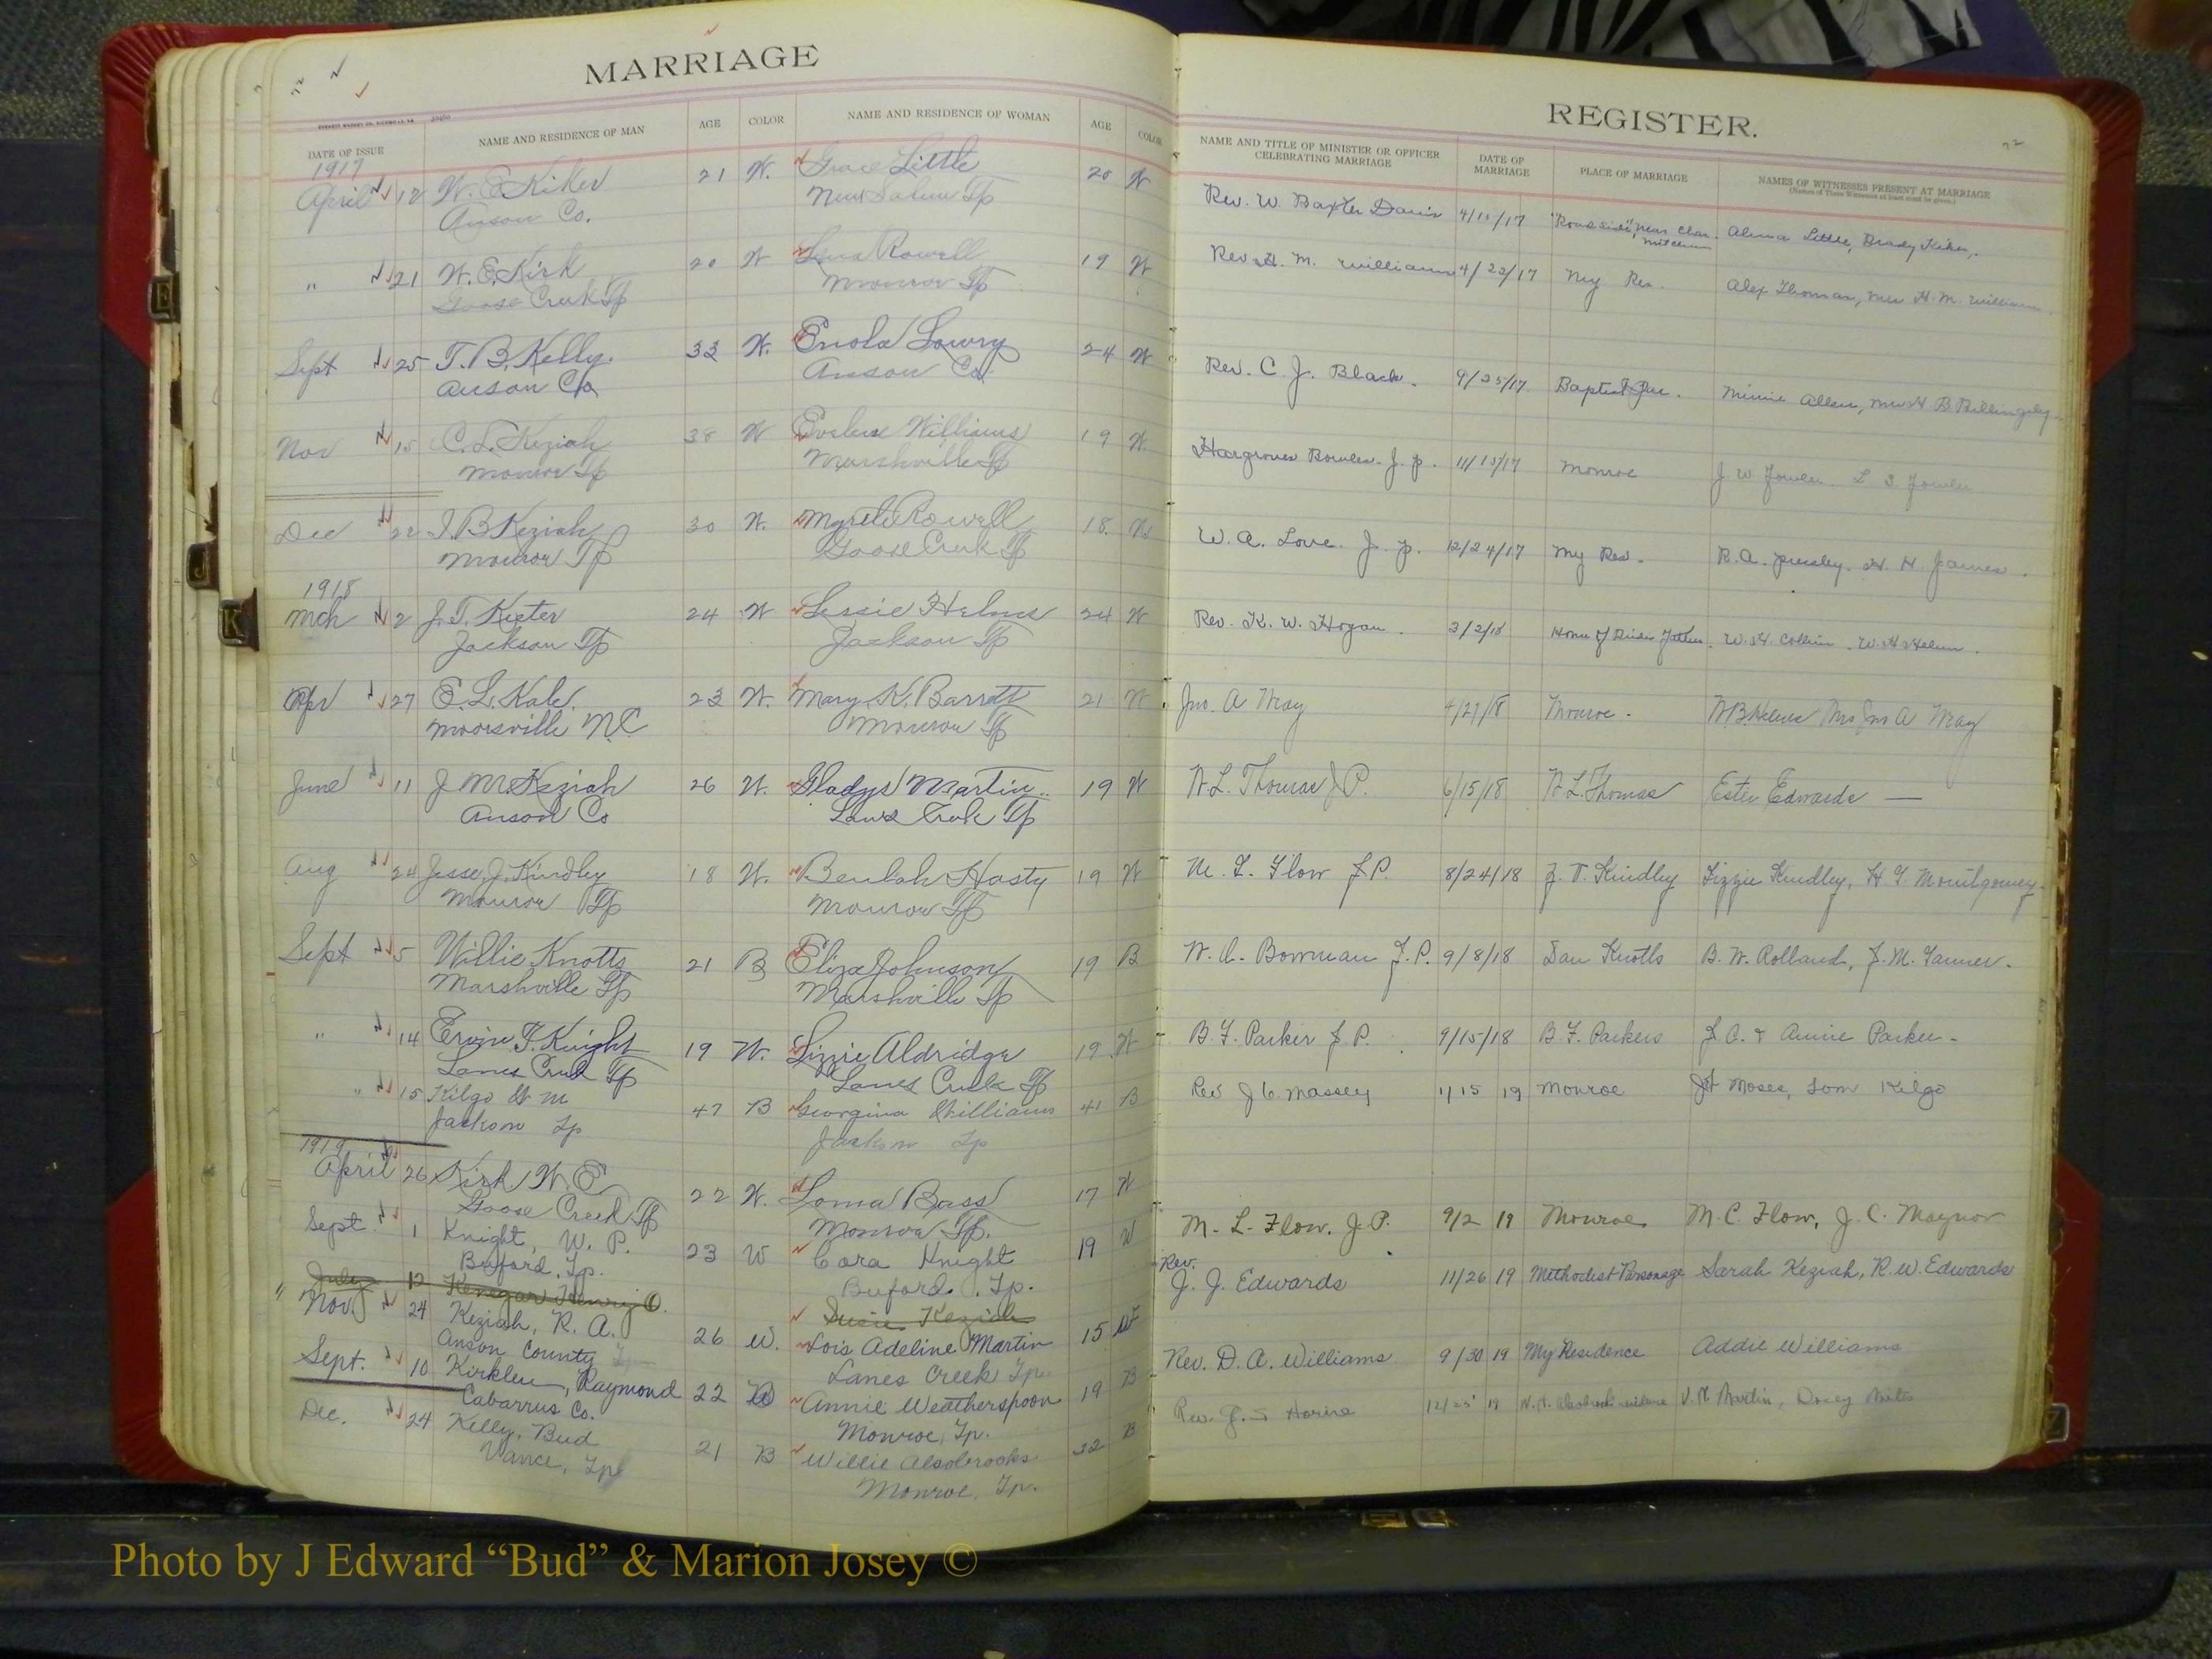 MARRIAGE
DATE OF ISSUE NAME AND RESIDENCE OF MAN AGE COLOR NAME AND RESIDENCE OF WOMAN AGE COLOR
1917
April 12 W. E. Kiker 21 W. Grace Little 20 W
Anson Co. New Salem Tp
" 21 W. E. Kirk 20 W Lena Rowell 19 W
Goose Creek Tp Monroe Tp
Sept 25 T. B. Kelly. 33 W. Enola Lowry 24 W
Anson Co Anson Co
Nov 15 C. L. Keziah 38 W Evelene Williams 19 W.
Monroe Tp Marshville Tp
Dec 22 J. B. Keziah 30 W. Myrtle Rowell 18. W
Monroe Tp Goose Creek Tp
1918
Mch 2 J. T. Kieter 24 W Lessie Helms 24 W
Jackson Tp Jackson Tp
Apr 27 E. L. Kale. 23 W. Mary K. Barrett 21 W
Moorsville N.C Monroe Tp
June 11 J M Keziah 26 W. Gladys Martin 19 W
Anson Co Lanes Creek Tp
Aug 24 Jesse J. Kindley 18 W. Beulah Hasty 19 W
Monroe Tp Monroe Tp
Sept 5 Willie Knotts 21 B Eliza Johnson 19 B
Marshville Tp Marshville Tp
" 14 Ervin T. Knight 19 W. Lizzie Aldridge 19 W
Lanes Creek Tp Lanes Creek Tp
" 15 Kilgo W M 47 B Georgina Williams 41 B
Jackson Tp Jackson Tp
1919
April 26 Kirk W. E 22 W. Loma Bass 17 W
Goose Creek Tp Monroe Tp.
Sept. 1 Knight, W. P. 23 W Cora Knight 19 W
Buford. Tp. Buford. Tp.
" July 12 Kenegar Henry O. Susie Keziah
Nov. 24 Keziah, R. A. 26 W. Lois Adeline Martin 15 W
Anson County Lanes Creek Tp.
Sept. 10 Kirklen, Raymond 22 Annie Weatherspoon 19 B
Cabarrus Co. Monroe, Tp.
Dec. 24 Kelly, Bud 21 B Willie Alsobrooks 32 B
Vance, Tp Monroe, Tp.
REGISTER.
NAME AND TITLE OF MINISTER OR OFFICER CELEBRATING MARRIAGE DATE OF MARRIAGE PLACE OF MARRIAGE NAMES OF WITNESSES PRESENT AT MARRIAGE
(Names of Three Witnesses at least must be given.)
Rev. W. Baxter Davis 4/15/17 "Road side", near Chas. Alma Little, Brady Kiker,
Rev. H. M. Williams 4/22/17 My Res. Alex Thomas, Mrs H. M. Williams
Rev. C. J. Black. 9/25/17 Baptist Par. Minnie Allen, Mrs H B Billingsley
Hargroves Bowles. J. P. 11/15/17 Monroe J W Fowler. L S Fowler
W. A. Love. J. P. 12/24/17 My Res. R. A. Presley. H. H. James.
Rev. K. W. Hogan. 3/2/18 Home of Brides Father. W. H. Collins. W. H Helms.
Jno. A Wray 4/27/18 Monroe. Mrs Jno A Wray
W L. Thomas J P. 6/15/18 W L Thomas Ester Edwards —
M. L. Flow J.P. 8/24/18 Z. T. Kindley Lizzie Kindley, H. G. Montgomery.
W. C. Bowman J.P. 9/8/18 Dan Knotts B. W. Rolland, J. M. Tanner.
B. F. Parker J P. 9/15/18 B. F. Parkers J. C. & Annie Parker.
Rev J C Massey 1 15 19 Monroe Moses, Tom Kilgo
M. L. Flow, J. P. 9/2 19 Monroe M. C. Flow, J. C. Maynor
Rev. J. J. Edwards 11/26 19 Methodist Parsonage Sarah Keziah, R. W. Edwards
Rev. D. A. Williams 9/30 19 My Residence Addie Williams
Rev. J. S 12/25 19 V. M. Martin,
Photo by J Edward “Bud” & Marion Josey ©